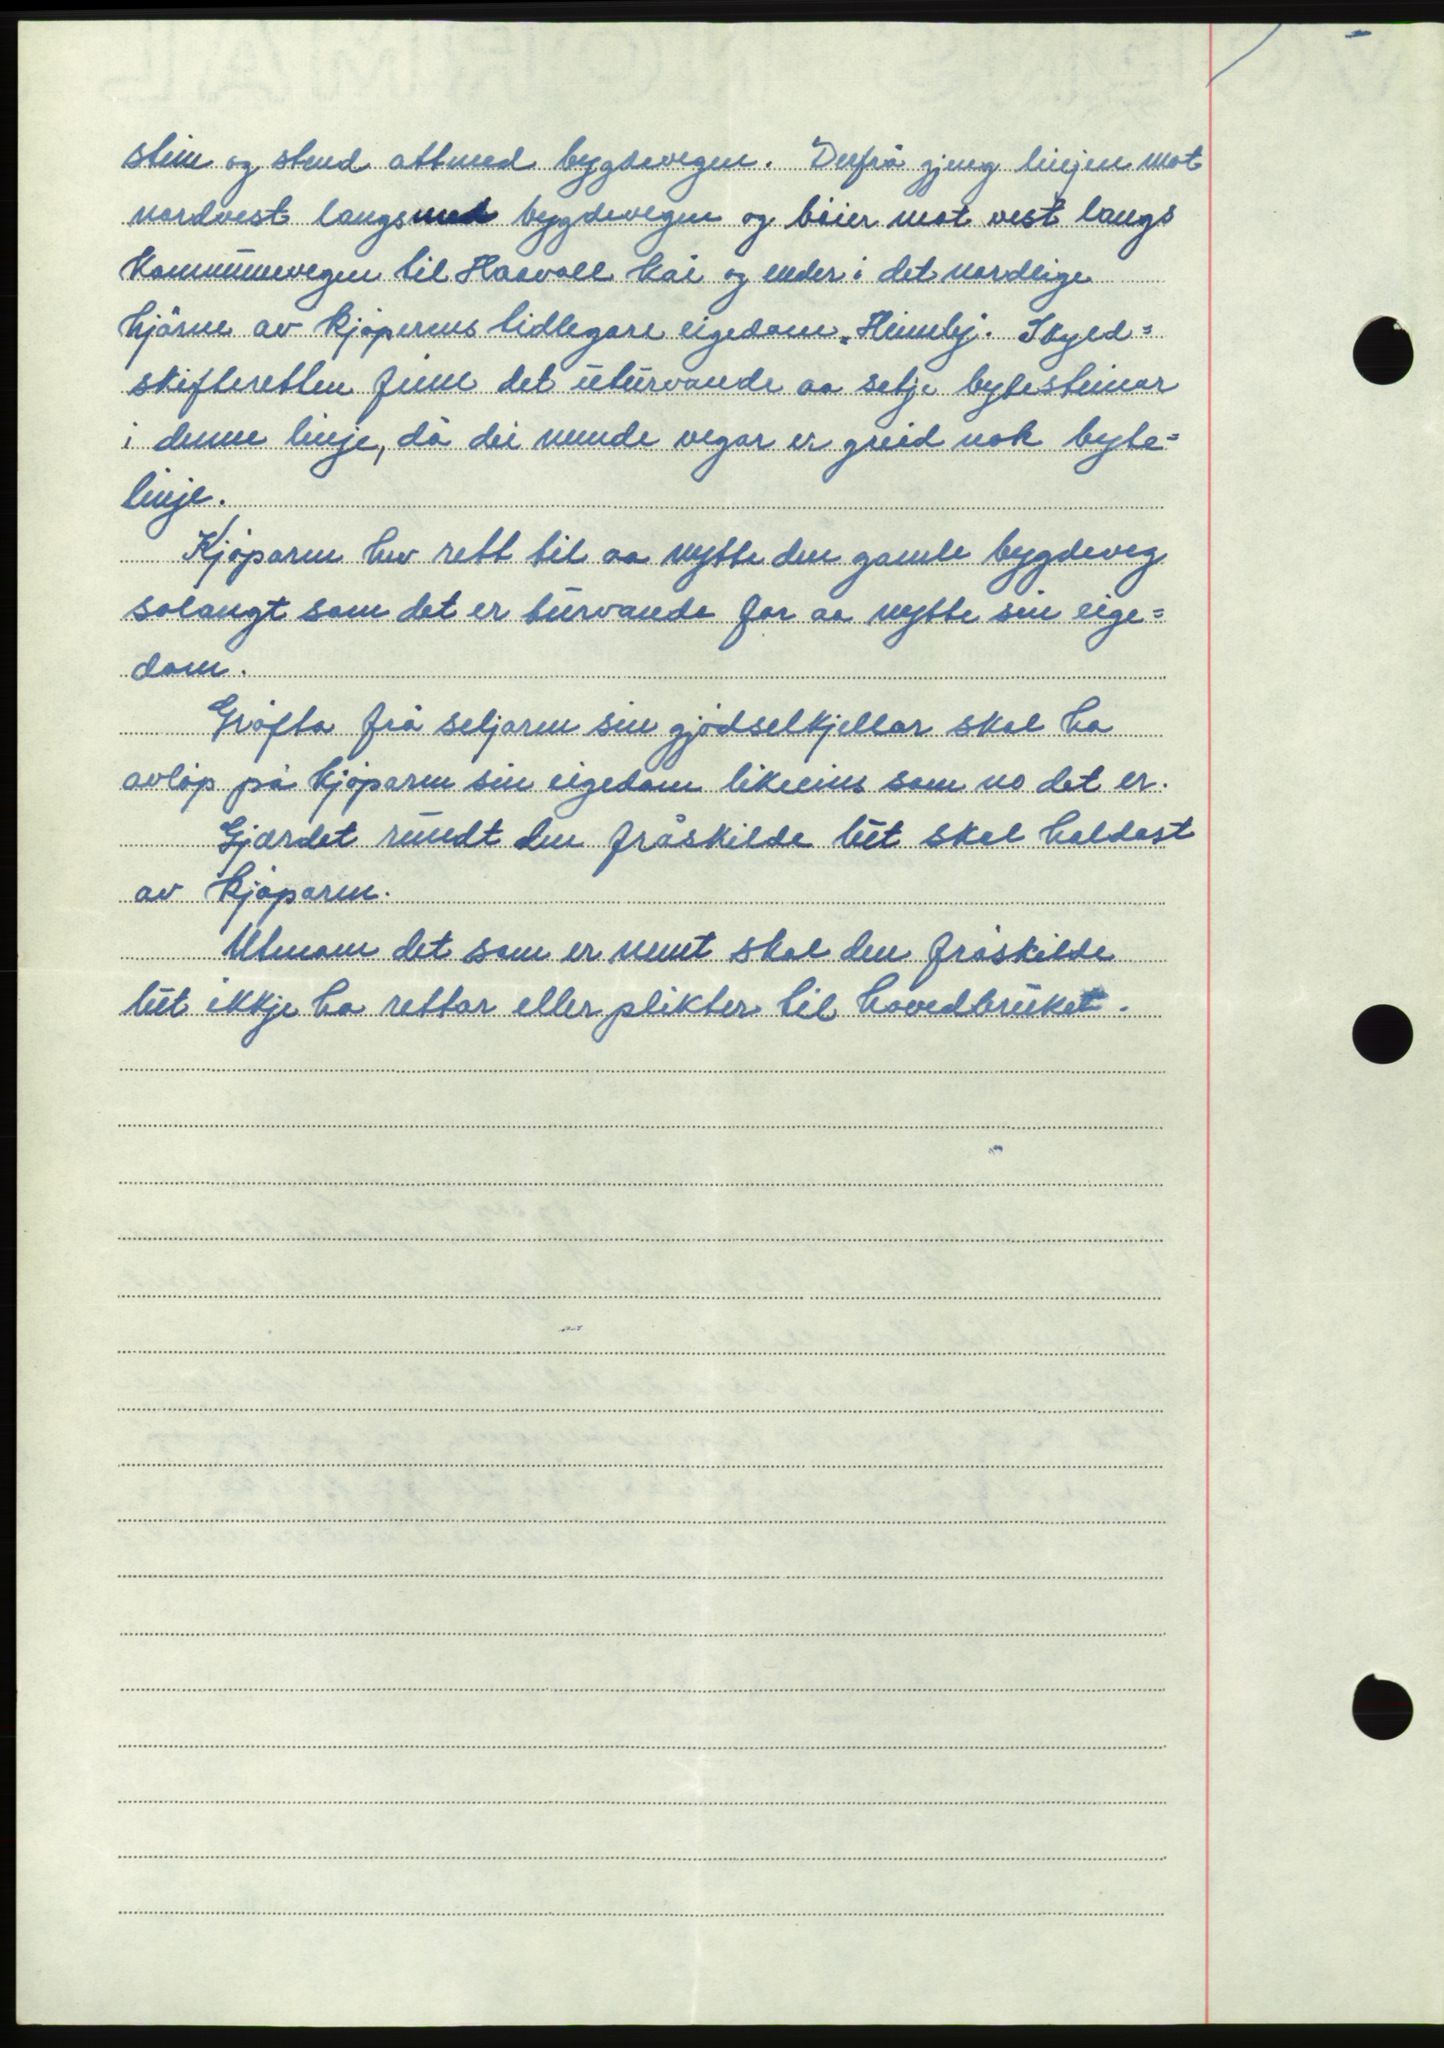 stein og stend attmed bygdevegen. Derfrå gjeng linjen mot
nordvest langsmed bygdevegen og bøier mot vest langs
Kommunevegen til Haavoll kai og ender i det nordlige
hjörne av kjøperens tidlegare eigedom „Heimly". Skyld=
skifteretten finn det uturvande aa setje bytesteinar
i denne linje, då dei nemde vegar er greid nok byte=
linje.
Kjøparen hev rett til aa nytte den gamle bygdeveg
solangt som det er turvande for aa nytte sin eige=
dom.
Grøfta frå seljaren sin gjødselkjellar skal ha
avløp på kjøparen sin eigedom likeeins som no det er.
Gjerdet rundt den fråskilde lut skal haldast
av kjøparen.
Utenom det som er nemt skal den fråskilde
lut ikkje ha rettar eller plikter til hovedbruket.